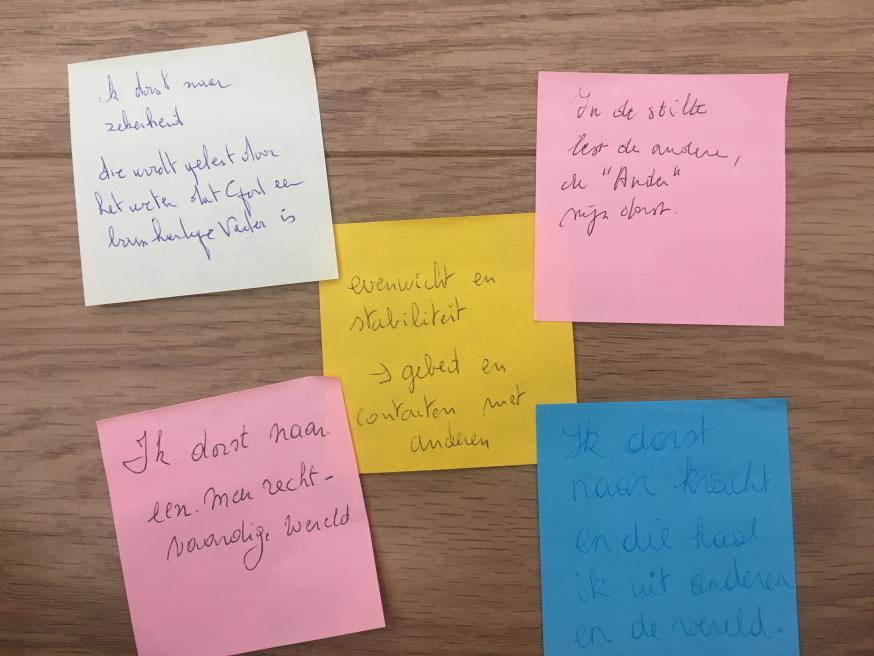 Ik dorst naar
zekerheid
die wordt gelest door
het weten dat God een
barmhartige Vader is
In de stilte
lest de andere,
de "Ander"
mijn dorst.
evenwicht en
stabiliteit
→ gebed en
contacten met
anderen
Ik dorst naar
een. meer recht-
vaardige wereld
Ik dorst
naar kracht
en die haal
ik uit anderen
en de wereld.